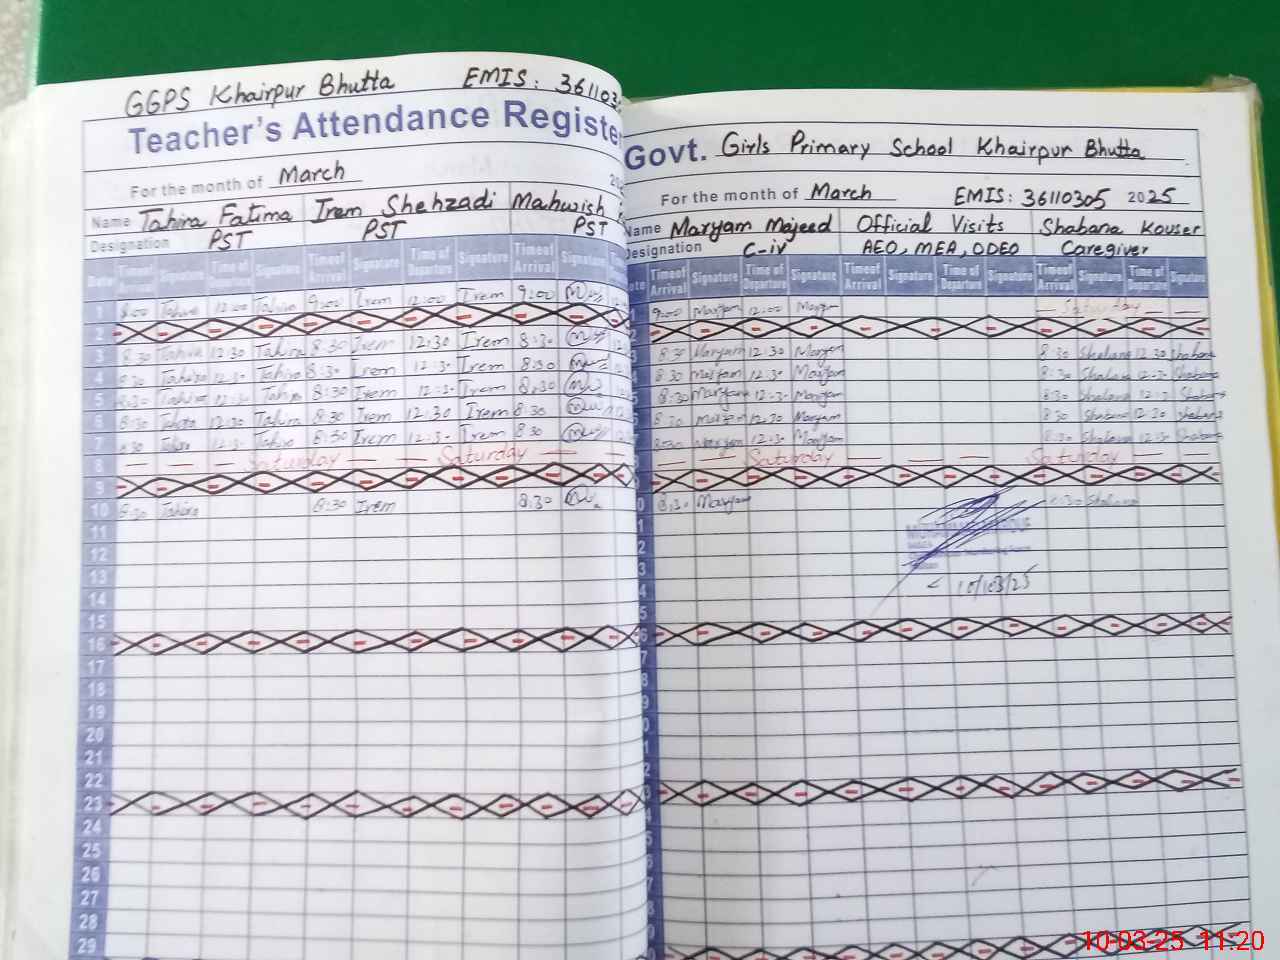 GGPS Khairpur Bhutta EMIS: 361103
Teacher's Attendance Registe
For the month of March
Name Tahira Fatima Irem Shehzadi Mahwish
Designation PST PST PST
Date Time of Arrival Signature Time of Departure Signature Time of Arrival Signature Time of Departure Signature Time of Arrival Signature
1 9:00 Tahira 12:00 Tahira 9:00 Irem 12:00 Irem 9:00
2
3 8:30 Tahira 12:30 Tahira 8:30 Irem 12:30 Irem 8:30
4 8:30 Tahira 12:30 Tahira 8:30 Irem 12:30 Irem 8:30
5 8:30 Tahira 12:30 Tahira 8:30 Irem 12:30 Irem 8:30
6 8:30 Tahira 12:30 Tahira 8:30 Irem 12:30 Irem 8:30
7 8:30 Tahira 12:30 Tahira 8:30 Irem 12:30 Irem 8:30
8 Saturday Saturday
9
10 8:30 Tahira 8:30 Irem 8:30
11
12
13
14
15
16
17
18
19
20
21
22
23
24
25
26
27
28
29
Govt. Girls Primary School Khairpur Bhutta
For the month of March EMIS: 36110305 2025
Name Maryam Majeed Official Visits Shabana Kouser
Designation C-iv AEO, MEA, DDEO Caregiver
Time of Arrival Signature Time of Departure Signature Time of Arrival Signature Time of Departure Signature Time of Arrival Signature Time of Departure Signature
9:00 Maryam 12:00 Maryam Saturday
8:30 Maryam 12:30 Maryam 8:30 Shabana 12:30 Shabana
8:30 Maryam 12:30 Maryam 8:30 Shabana 12:30 Shabana
8:30 Maryam 12:30 Maryam 8:30 Shabana 12:30 Shabana
8:30 Maryam 12:30 Maryam 8:30 Shabana 12:30 Shabana
8:30 Maryam 12:30 Maryam 8:30 Shabana 12:30 Shabana
Saturday Saturday
8:30 Maryam 8:30 Shabana
10/03/25
10-03-25 11:20